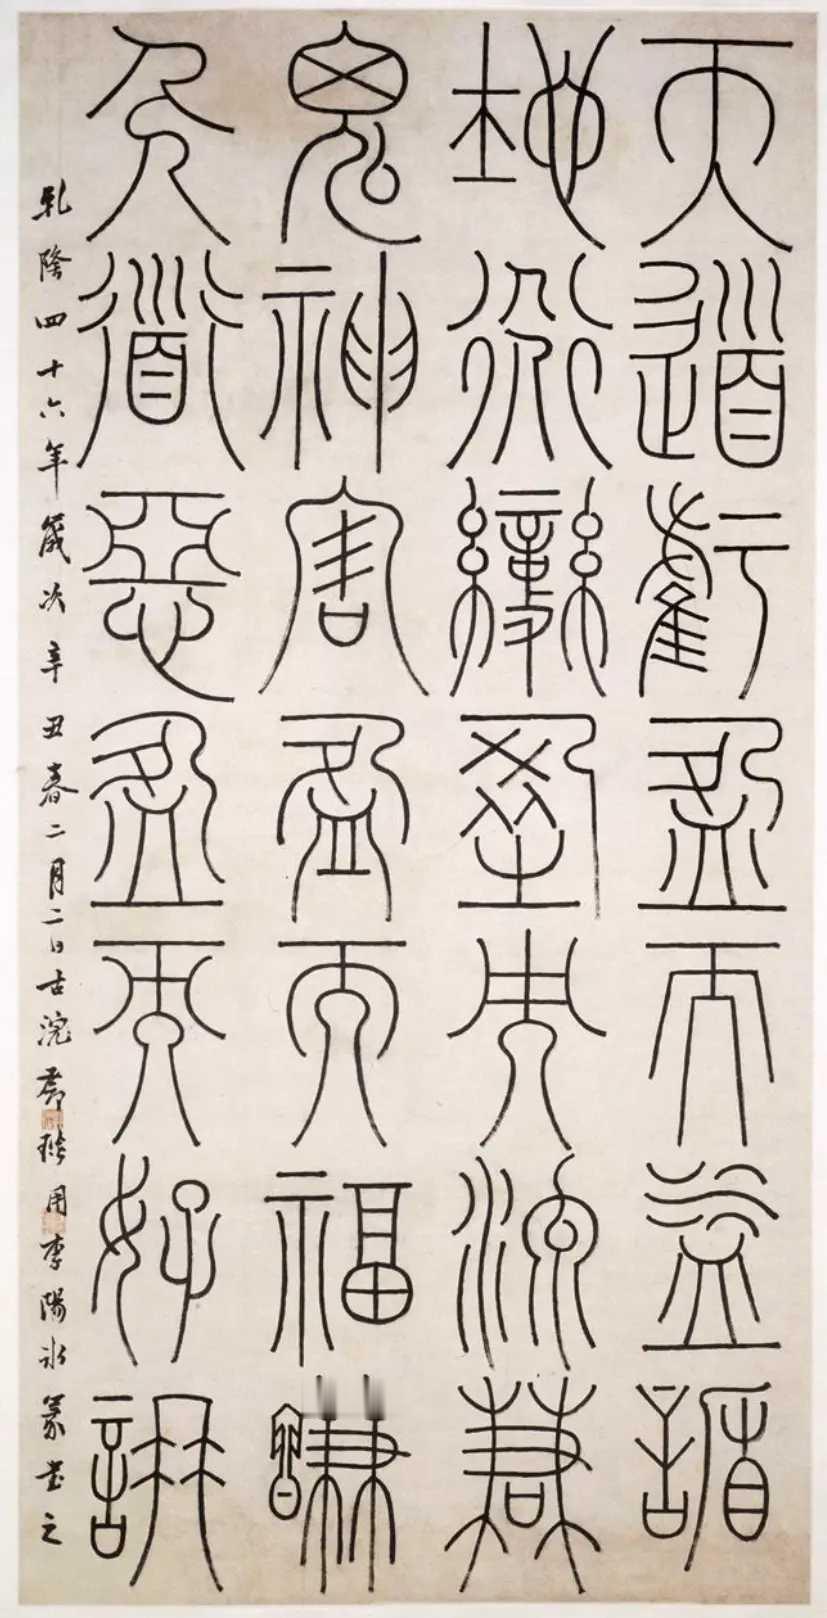 天道虧盈而益謙
地道變盈而流謙
鬼神害盈而福謙
人道惡盈而好謙
乾隆四十六年歲次辛丑春二月二日古浣鄧琰用李陽冰篆書之